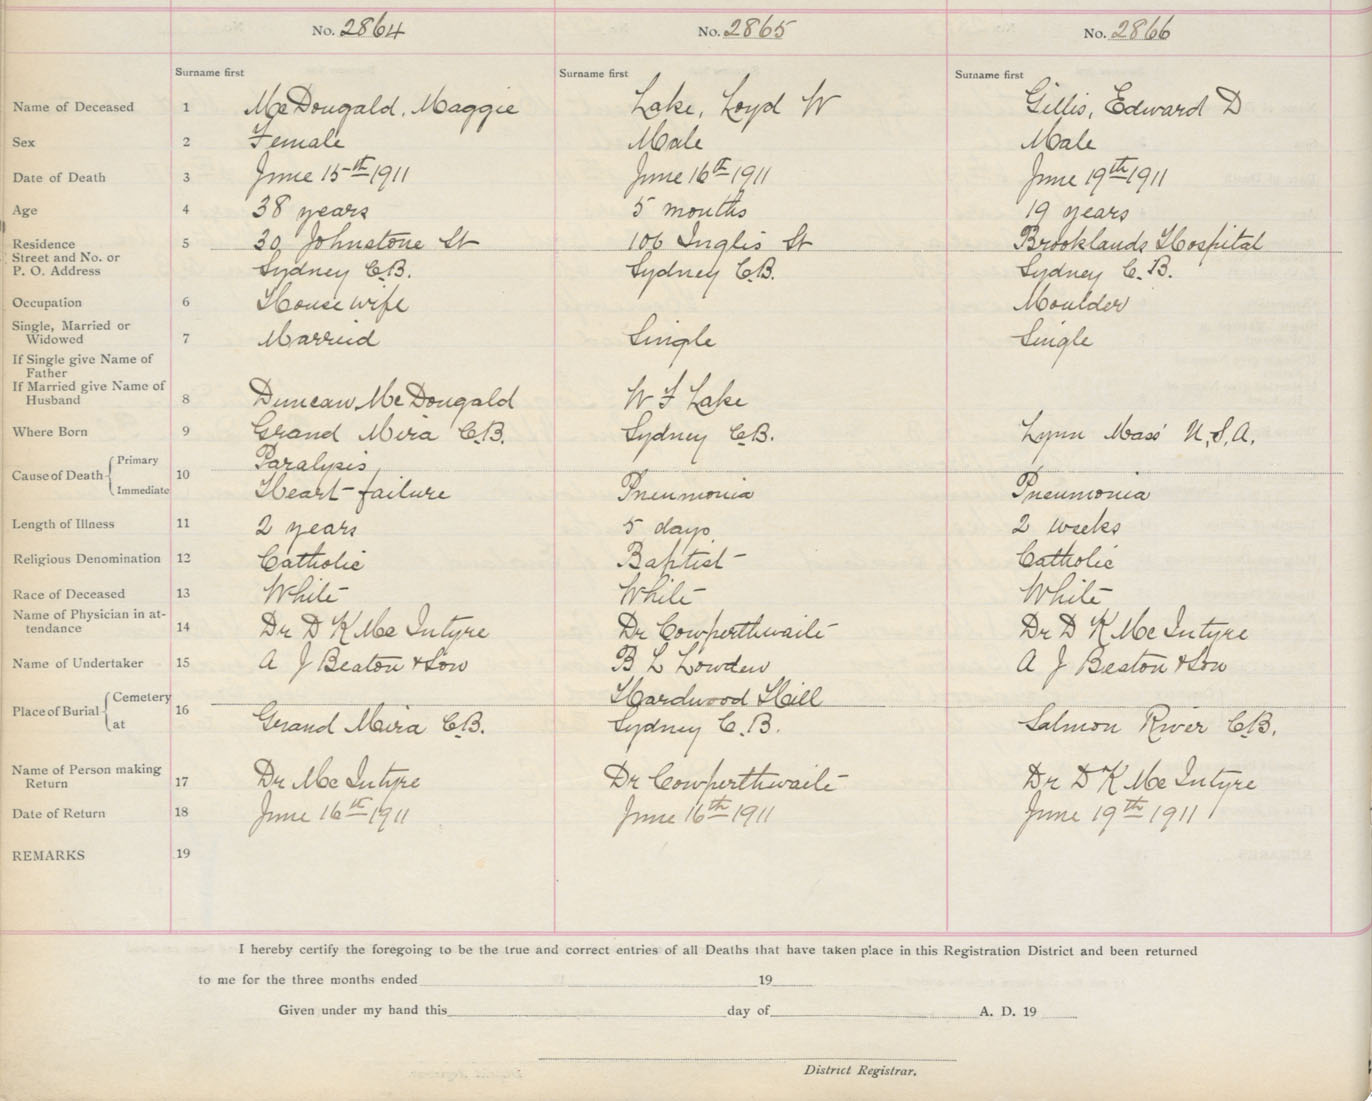 No. 2864 No. 2865 No. 2866
Surname first Surname first Surname first
Name of Deceased 1 McDougald, Maggie Lake, Loyd W Gillis, Edward D
Sex 2 Female Male Male
Date of Death 3 June 15th 1911 June 16th 1911 June 19th 1911
Age 4 38 years 5 months 19 years
Residence 5 30 Johnstone St 106 Inglis St Brooklands Hospital
Street and No. or
P. O. Address Sydney C.B. Sydney C.B. Sydney C.B.
Occupation 6 House wife Moulder
Single, Married or
Widowed 7 Married Single Single
If Single give Name of
Father
If Married give Name of
Husband 8 Duncan McDougald W F Lake
Where Born 9 Grand Mira C.B. Sydney C.B. Lynn Mass U.S.A.
Cause of Death Primary 10 Paralysis
Immediate Heart-failure Pneumonia Pneumonia
Length of Illness 11 2 years 5 days 2 weeks
Religious Denomination 12 Catholic Baptist Catholic
Race of Deceased 13 White White White
Name of Physician in at-
tendance 14 Dr D K McIntyre Dr Cowperthwaite Dr D K McIntyre
Name of Undertaker 15 A J Beaton & Son B L Lowden A J Beaton & Son
Place of Burial Cemetery 16 Hardwood Hill
at Grand Mira C.B. Sydney C.B. Salmon River C.B.
Name of Person making
Return 17 Dr McIntyre Dr Cowperthwaite Dr D K McIntyre
Date of Return 18 June 16th 1911 June 16th 1911 June 19th 1911
REMARKS 19
I hereby certify the foregoing to be the true and correct entries of all Deaths that have taken place in this Registration District and been returned
to me for the three months ended 19
Given under my hand this day of A. D. 19
District Registrar.